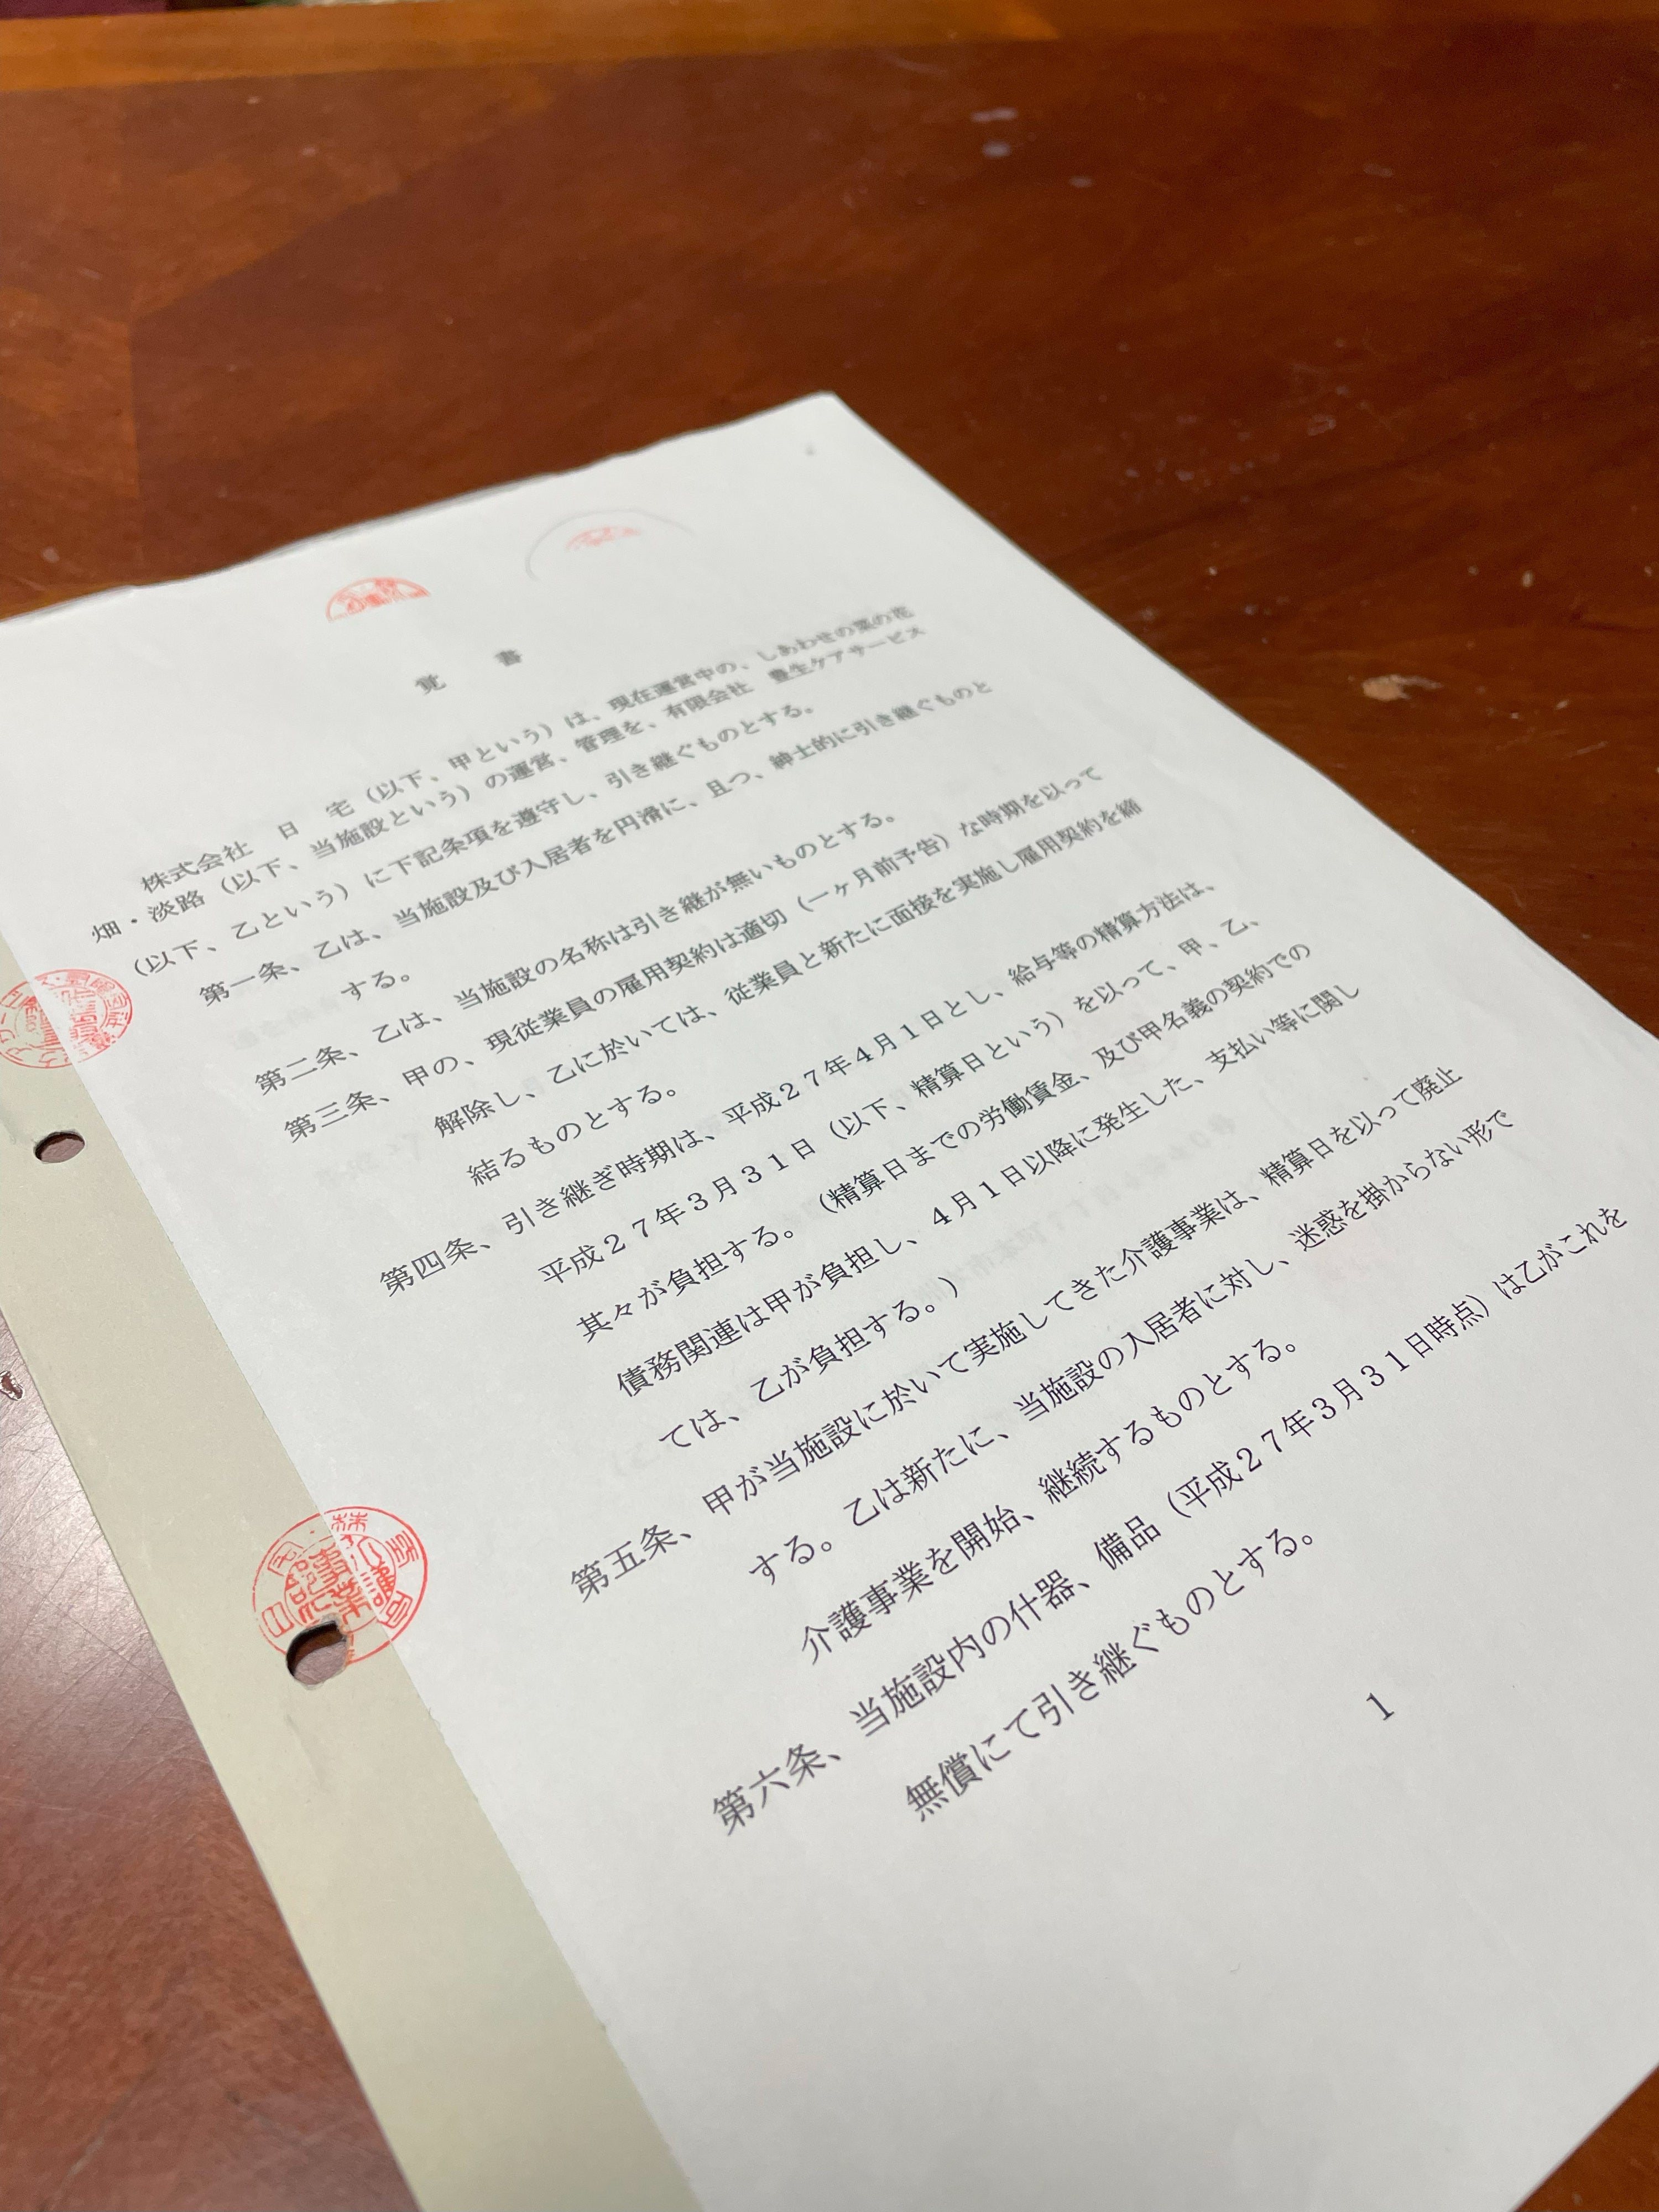 覚　　書
株式会社　日　宅（以下、甲という）は、現在運営中の、しあわせの菜の花
畑・淡路（以下、当施設という）の運営、管理を、有限会社　豊生ケアサービス
（以下、乙という）に下記条項を遵守し、引き継ぐものとする。
第一条、乙は、当施設及び入居者を円滑に、且つ、紳士的に引き継ぐものと
する。
第二条、乙は、当施設の名称は引き継が無いものとする。
第三条、甲の、現従業員の雇用契約は適切（一ヶ月前予告）な時期を以って
解除し、乙に於いては、従業員と新たに面接を実施し雇用契約を締
結るものとする。
第四条、引き継ぎ時期は、平成２７年４月１日とし、給与等の精算方法は、
平成２７年３月３１日（以下、精算日という）を以って、甲、乙、
其々が負担する。（精算日までの労働賃金、及び甲名義の契約での
債務関連は甲が負担し、４月１日以降に発生した、支払い等に関し
ては、乙が負担する。）
第五条、甲が当施設に於いて実施してきた介護事業は、精算日を以って廃止
する。乙は新たに、当施設の入居者に対し、迷惑を掛からない形で
介護事業を開始、継続するものとする。
第六条、当施設内の什器、備品（平成２７年３月３１日時点）は乙がこれを
無償にて引き継ぐものとする。
1